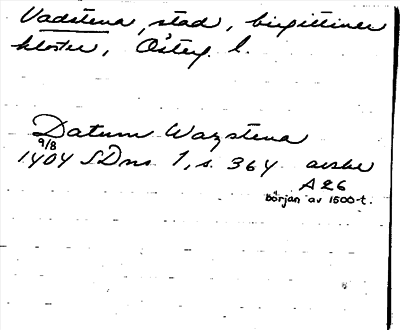 Vadstena, stad, birgittiner
kloster, Österg. l.
Datum Wazstena
9/8
1404 SDns 1, s. 364 avskr
A 26
början av 1500-t.